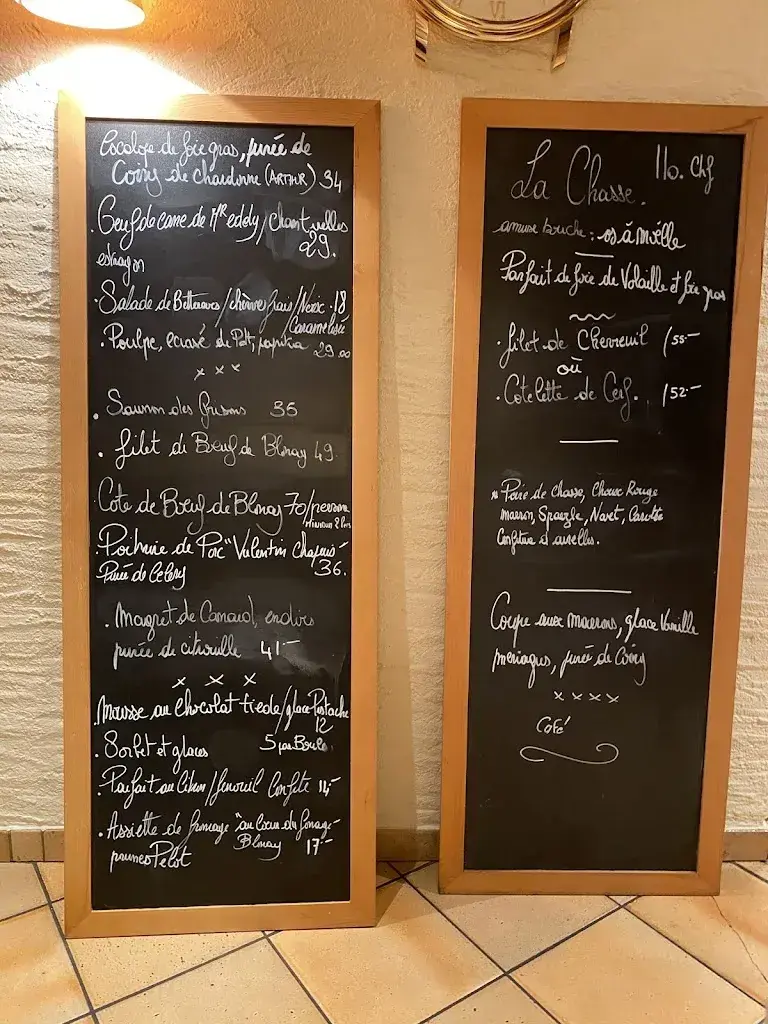 Escalope de foie gras, purée de
Coing de chardonne (ARTHUR) 34
. Oeuf de cane de Mr eddy / Chanterelles
29.
estragon
. Salade de Betteraves / chèvre frais / Noix . 18
Caramelisée
. Poulpe, ecrasé de Pdt, paprika 29.00
x x x
. Saumon des Grisons 36
. filet de Boeuf de Blonay 49.
Cote de Boeuf de Blonay 70/personne
minimum 2 Pers
. Poitrine de Porc "Valentin Chapuis"
Purée de Celery 36.
. Magret de Canard, endives
purée de citrouille 41.-
x x x
. Mousse au Chocolat tiede / glace Pistache
12
. Sorbet et glaces 5 par Boule
. Parfait au Citron / fenouil Confite 14.-
. Assiette de fromage "au Coeur du fromage"
Blonay 17.-
La Chasse.
110. chf
amuse bouche : os à Moëlle
Parfait de foie de Volaille et foie gras
. filet de Chevreuil (55.-
où
. Cotelette de Cerf. (52.-
Poire de chasse, Choux Rouge
marron, Spaezle, Navet, Carotte
Confiture d'airelles.
Coupe aux marrons, glace Vanille
meringues, purée de Coing
x x x x
Café
VI